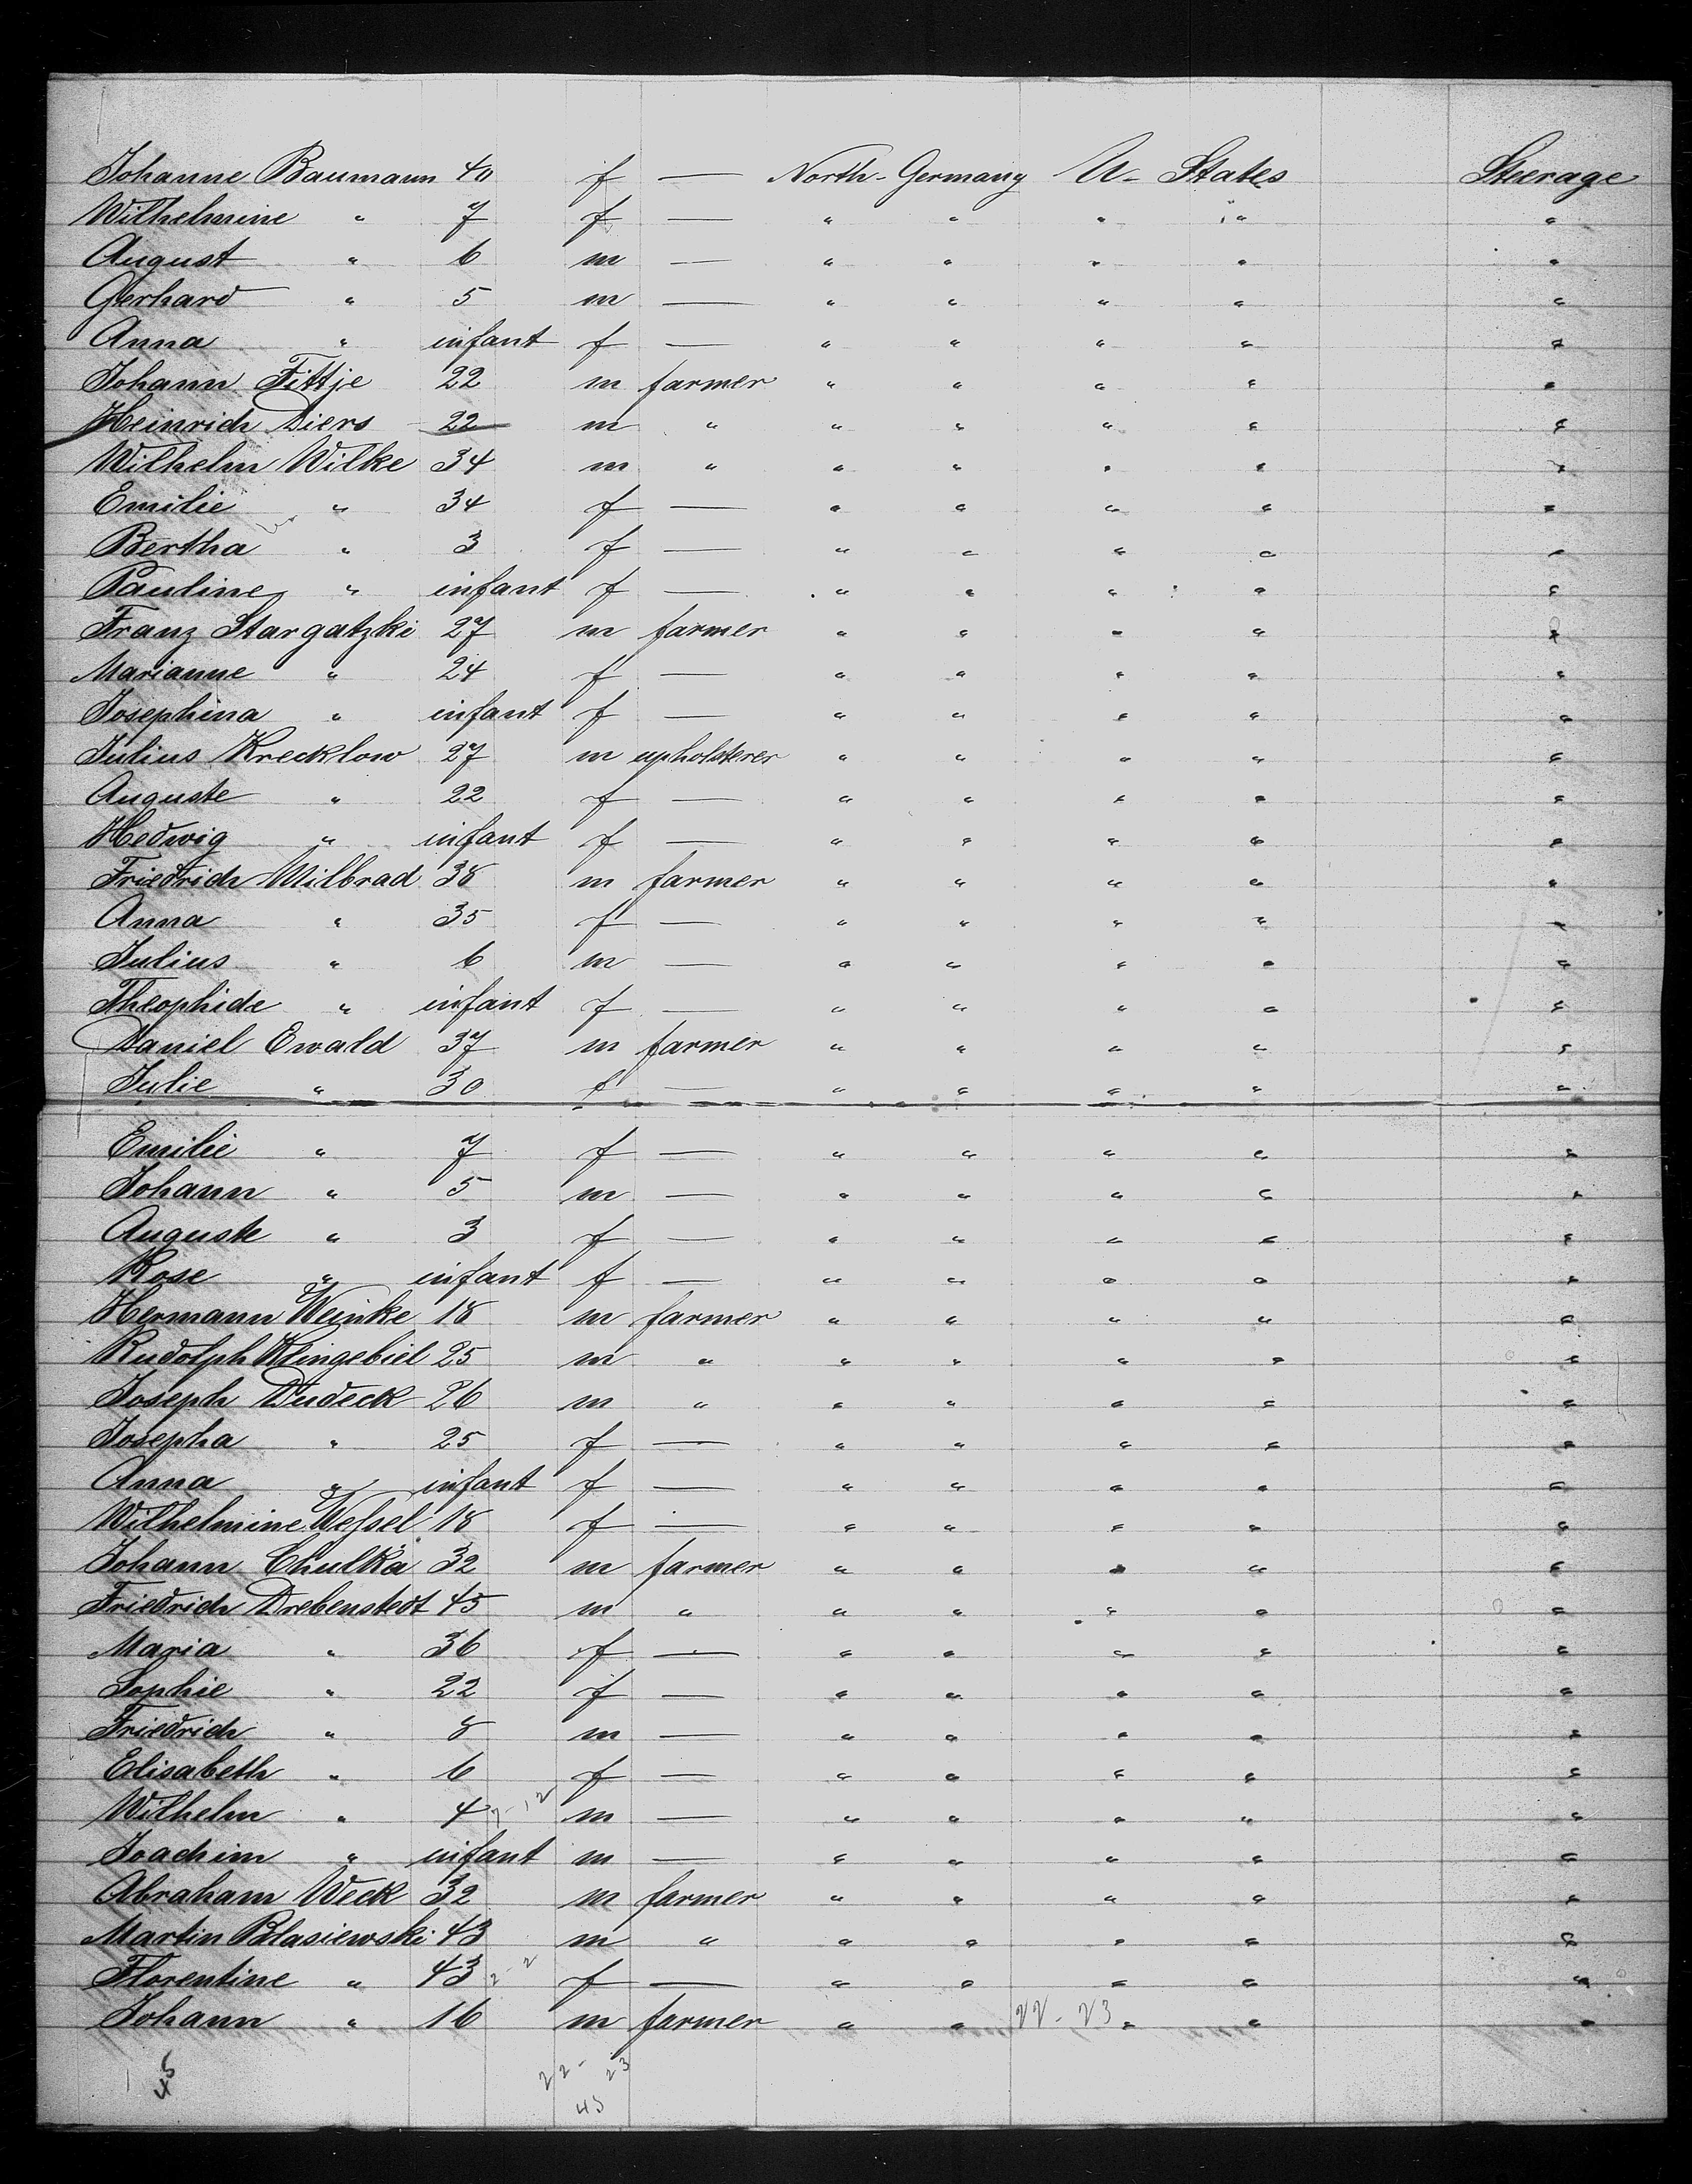 Johanne Baumann 40 f — North-Germany U-States Steerage
Wilhelmine " 7 f — " " " " "
August " 6 m — " " " " "
Gerhard " 5 m — " " " " "
Anna " infant f — " " " " "
Johann Fittje 22 m farmer " " " " "
Heinrich Diers 22 m " " " " " "
Wilhelm Wilke 34 m " " " " " "
Emilie " 34 f — " " " " "
Bertha " 3 f — " " " " "
Pauline " infant f — " " " " "
Franz Stargatzki 27 m farmer " " " " "
Marianne " 24 f — " " " " "
Josephina " infant f — " " " " "
Julius Krecklow 27 m upholsterer " " " " "
Auguste " 22 f — " " " " "
Hedwig " infant f — " " " " "
Friedrich Milbrad 38 m farmer " " " " "
Anna " 35 f — " " " " "
Julius " 6 m — " " " " "
Theophide " infant f — " " " " "
Daniel Ewald 37 m farmer " " " " "
Julie " 30 f — " " " " "
Emilie " 7 f — " " " " "
Johann " 5 m — " " " " "
Auguste " 3 f — " " " " "
Rose " infant f — " " " " "
Hermann Weinke 18 m farmer " " " " "
Rudolph Klingebiel 25 m " " " " " "
Joseph Dudeck 26 m " " " " " "
Josepha " 25 f — " " " " "
Anna " infant f — " " " " "
Wilhelmine Weſsel 18 f — " " " " "
Johann Chulka 32 m farmer " " " " "
Friedrich Drebenstedt 45 m " " " " " "
Maria " 36 f — " " " " "
Sophie " 22 f — " " " " "
Friedrich " 8 m — " " " " "
Elisabeth " 6 f — " " " " "
Wilhelm " 4 7-12 m — " " " " "
Joachim " infant m — " " " " "
Abraham Week 32 m farmer " " " " "
Martin Blasiewski 43 m " " " " " "
Florentine " 43 2-2 f — " " " " "
Johann " 16 m farmer " " 22-23 " " "
45 22-23
45